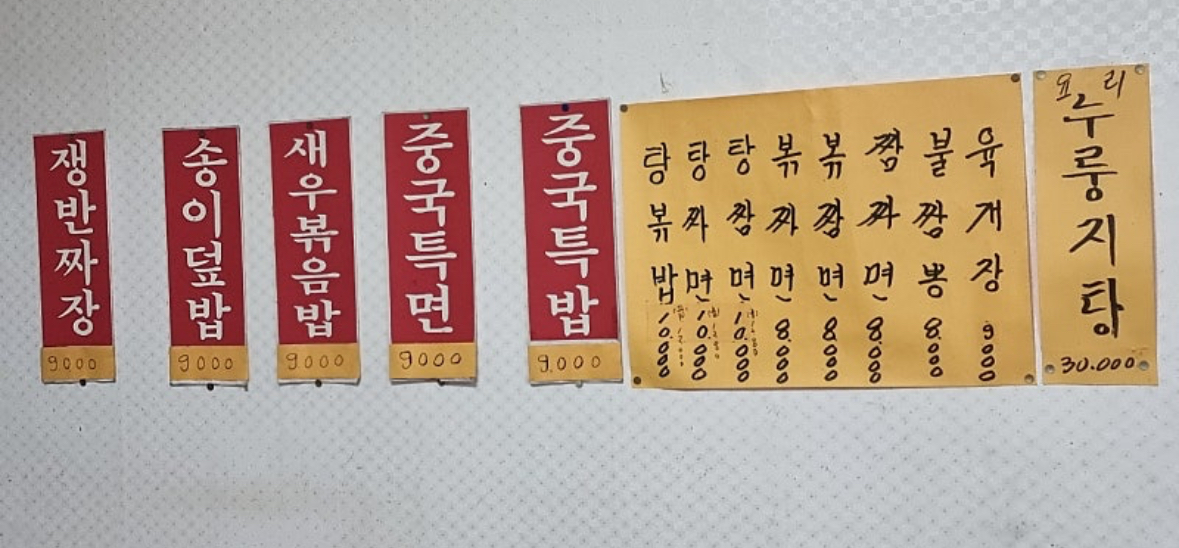 쟁반짜장
9000
송이덮밥
9000
새우볶음밥
9000
중국특면
9000
중국특밥
9.000
탕볶밥
10.000
탕짜면
10.000
탕짬면
10.000
볶짜면
8.000
볶짬면
8.000
짬짜면
8.000
불짬뽕
8.000
육개장
9000
요리
누룽지탕
30.000